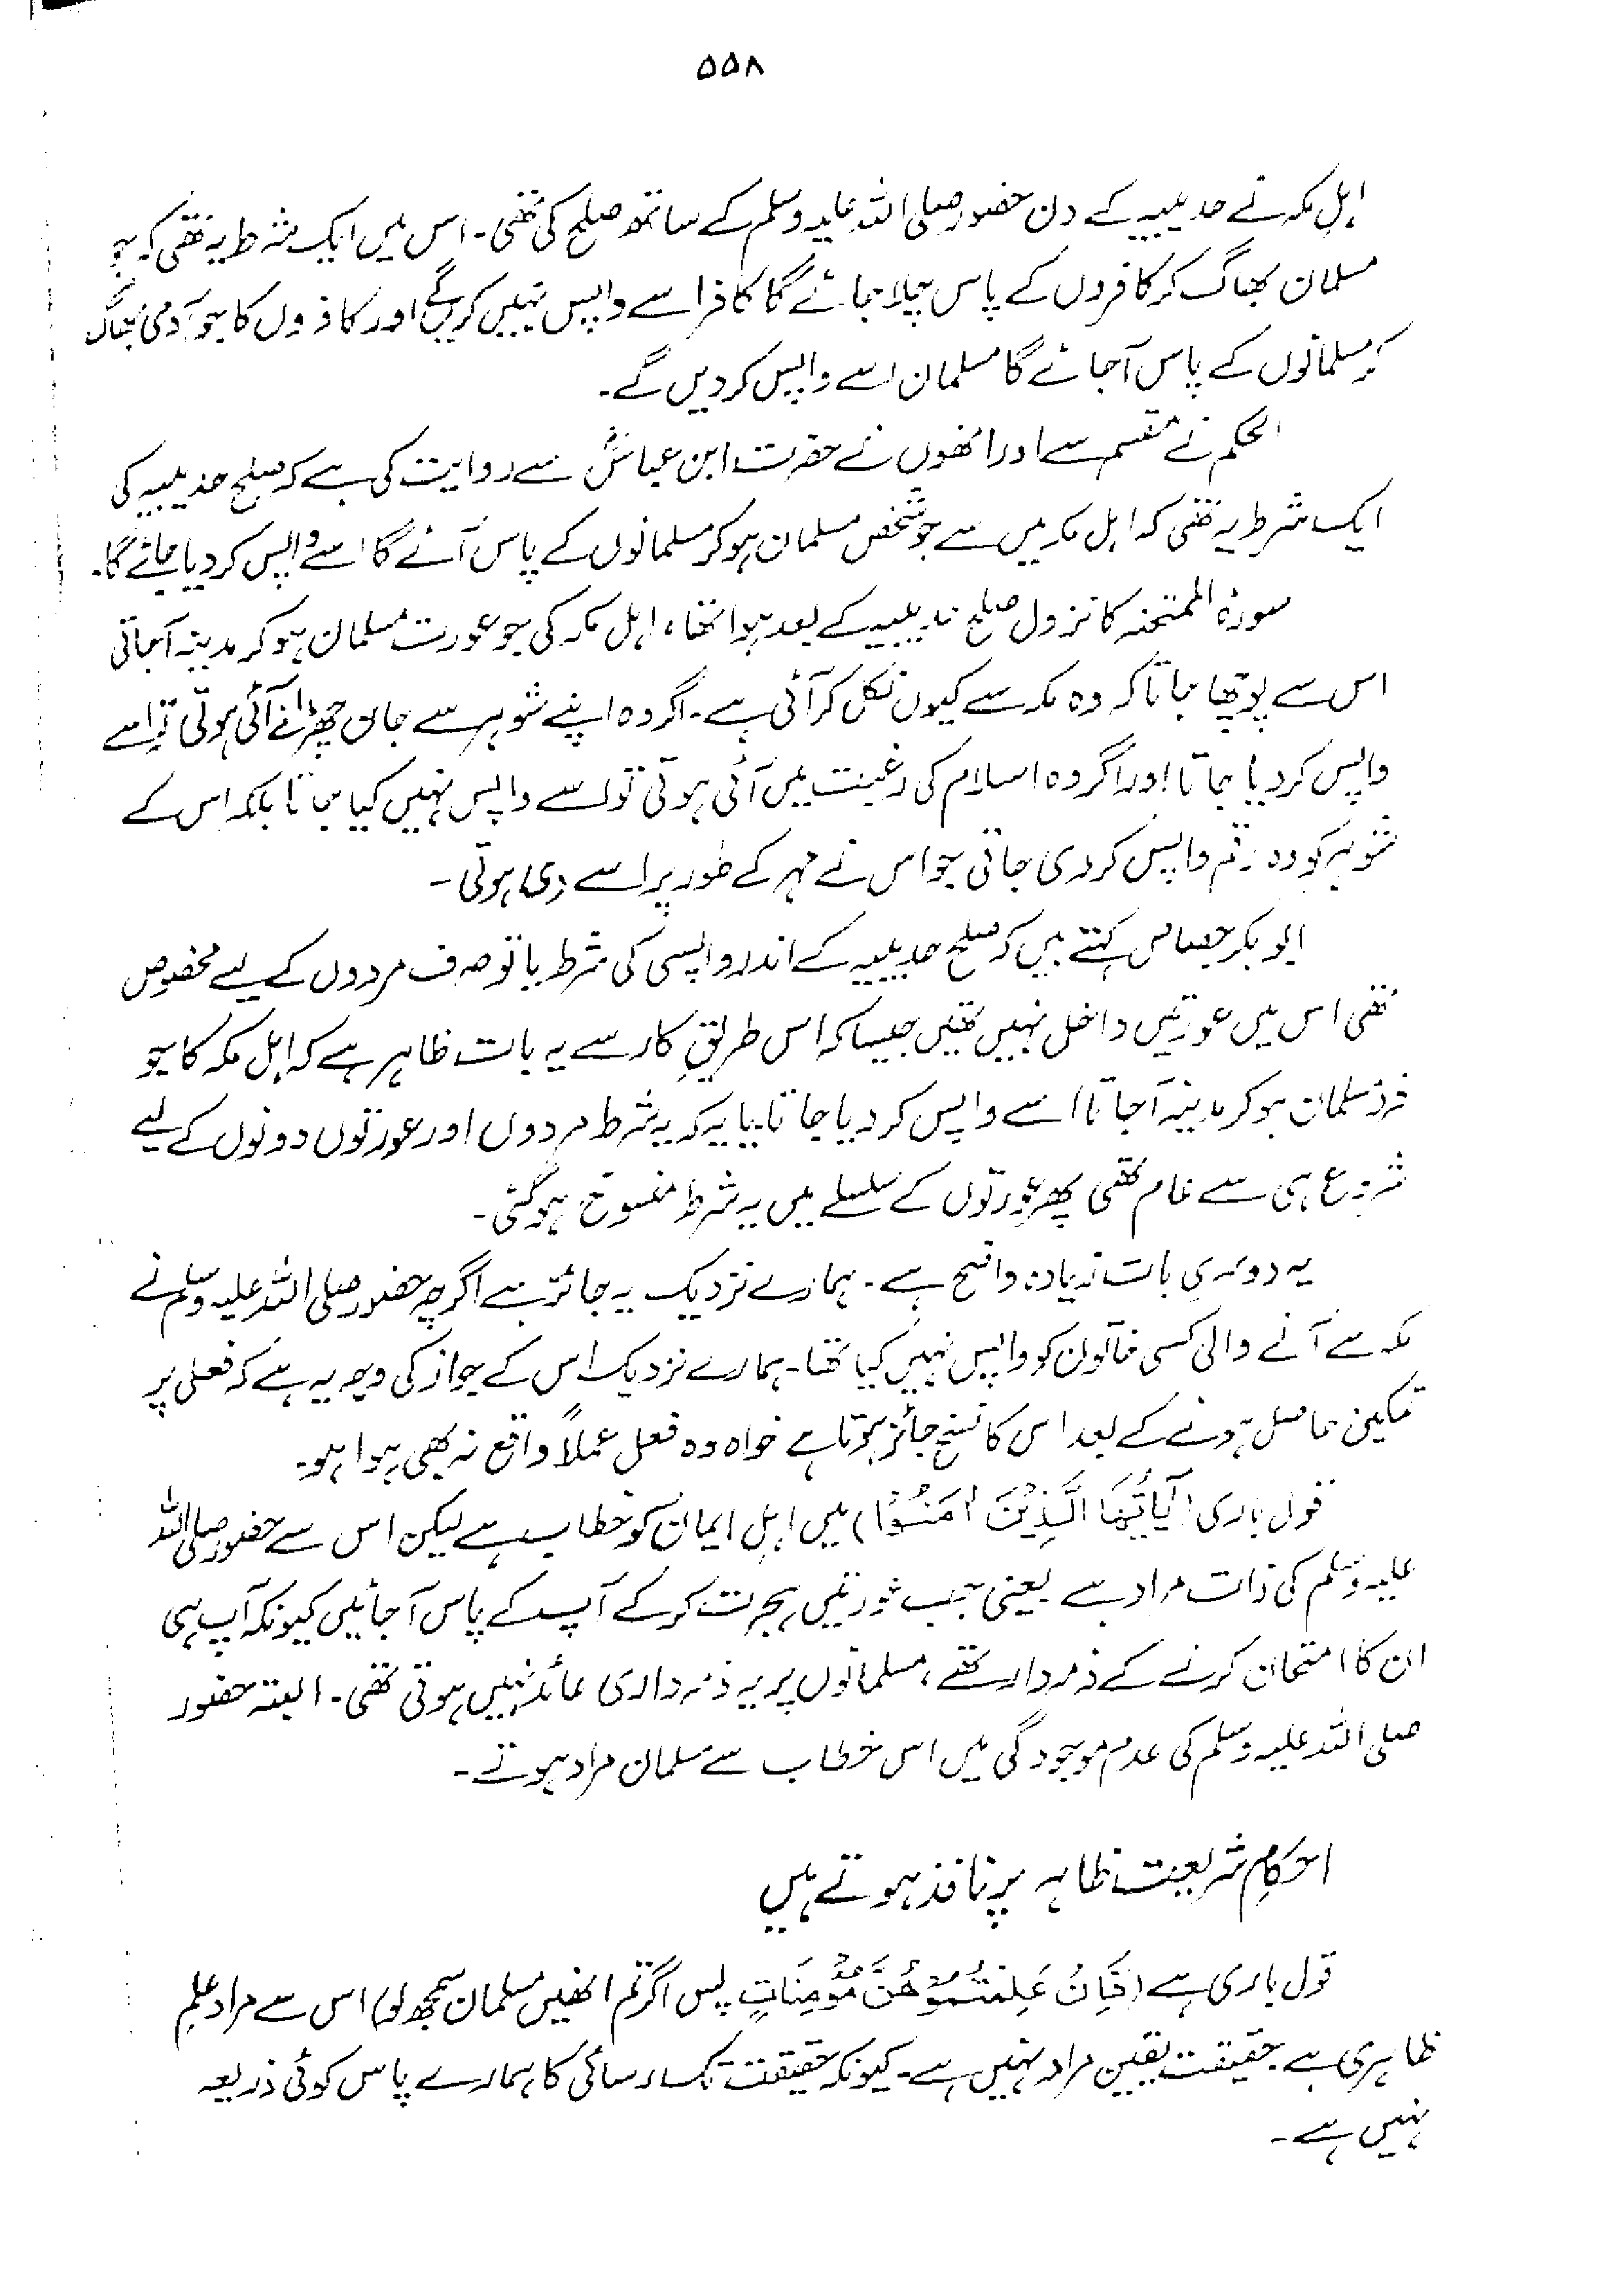 ۵۵۸
اہل مکہ نے حدیبیہ کے دن حضور صلی اللہ علیہ وسلم کے ساتھ صلح کی تھی۔ اس میں ایک شرط یہ تھی کہ جو
مسلمان بھاگ کر کافروں کے پاس چلا جائے گا کافر اسے واپس نہیں کریں گے اور کافروں کا جو آدمی بھاگ
کر مسلمانوں کے پاس آجائے گا مسلمان اسے واپس کر دیں گے۔
الحکم نے مقسم سے اور انھوں نے حضرت ابن عباسؓ سے روایت کی ہے کہ صلح حدیبیہ کی
ایک شرط یہ تھی کہ اہل مکہ میں سے جو شخص مسلمان ہو کر مسلمانوں کے پاس آئے گا اسے واپس کر دیا جائے گا۔
سورۂ الممتحنہ کا نزول صلح حدیبیہ کے بعد ہوا تھا، اہل مکہ کی جو عورت مسلمان ہو کر مدینہ آجاتی
اس سے پوچھا جاتا کہ وہ مکہ سے کیوں نکل کر آئی ہے۔ اگر وہ اپنے شوہر سے جان چھڑانے آئی ہوتی تو اسے
واپس کر دیا جاتا اور اگر وہ اسلام کی رغبت میں آئی ہوتی تو اسے واپس نہیں کیا جاتا بلکہ اس کے
شوہر کو وہ رقم واپس کر دی جاتی جو اس نے مہر کے طور پر اسے دی ہوتی۔
ابو بکر جصاص کہتے ہیں کہ صلح حدیبیہ کے اندر واپسی کی شرط یا تو صرف مردوں کے لیے مخصوص
تھی اس میں عورتیں داخل نہیں تھیں جیسا کہ اس طریقِ کار سے یہ بات ظاہر ہے کہ اہل مکہ کا جو
فرد مسلمان ہو کر مدینہ آجاتا اسے واپس کر دیا جاتا یا یہ کہ یہ شرط مردوں اور عورتوں دونوں کے لیے
شروع ہی سے عام تھی پھر عورتوں کے سلسلے میں یہ شرط منسوخ ہو گئی۔
یہ دوسری بات زیادہ واضح ہے۔ ہمارے نزدیک یہ جائز ہے اگرچہ حضور صلی اللہ علیہ وسلم نے
مکہ سے آنے والی کسی خاتون کو واپس نہیں کیا تھا۔ ہمارے نزدیک اس کے جواز کی وجہ یہ ہے کہ فعل پر
تمکین حاصل ہونے کے بعد اس کا نسخ جائز ہوتا ہے خواہ وہ فعل عملاً واقع نہ بھی ہوا ہو۔
قول باری (يٰٓاَيُّهَا الَّذِيْنَ اٰمَنُوْٓا) میں اہل ایمان کو خطاب ہے لیکن اس سے حضور صلی اللہ
علیہ وسلم کی ذات مراد ہے یعنی جب عورتیں ہجرت کر کے آپ کے پاس آجائیں کیونکہ آپ ہی
ان کا امتحان کرنے کے ذمہ دار تھے، مسلمانوں پر یہ ذمہ داری عائد نہیں ہوتی تھی۔ البتہ حضور
صلی اللہ علیہ وسلم کی عدم موجودگی میں اس خطاب سے مسلمان مراد ہوتے۔
احکامِ شریعت ظاہر پر نافذ ہوتے ہیں
قول باری ہے (فَاِنْ عَلِمْتُمُوْهُنَّ مُؤْمِنَاتٍ پس اگر تم انھیں مسلمان سمجھ لو) اس سے مراد علمِ
ظاہری ہے حقیقت یقین مراد نہیں ہے۔ کیونکہ حقیقت تک رسائی کا ہمارے پاس کوئی ذریعہ
نہیں ہے۔